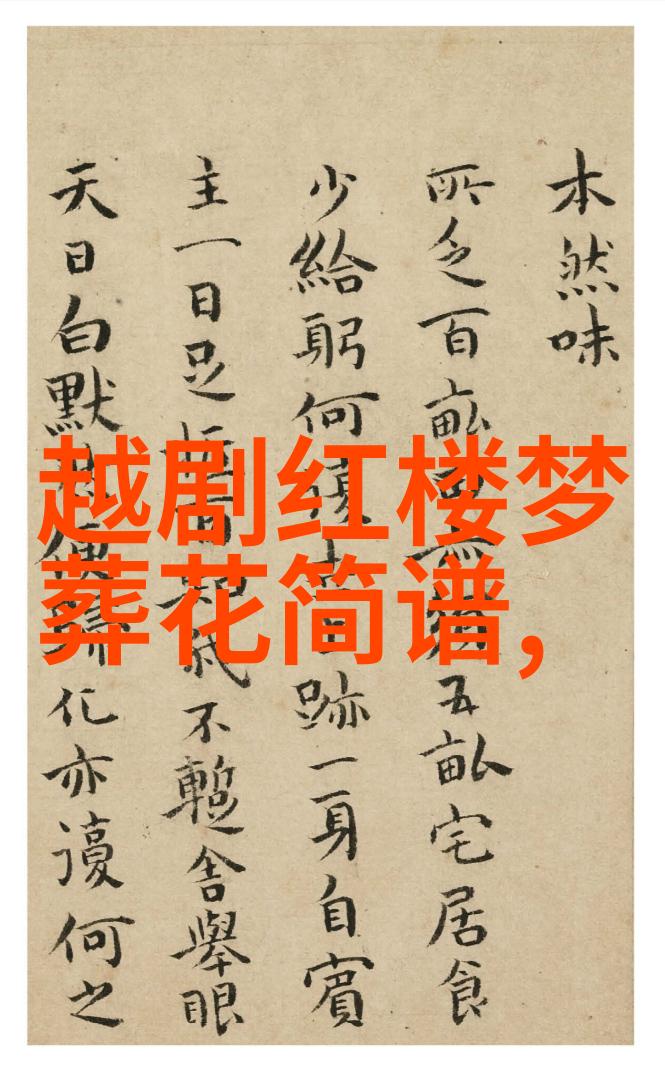 越剧红楼梦
葬花简谱,
本然味
所乏百畝五畝宅居食
少給躬何跡一身自賓
主一日足不暫舍舉眼
天日白默化亦謾何之